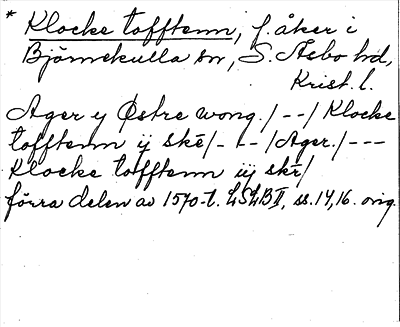 * Klocke tofftenn, f. åker i
Björnekulla sn, S. Åsbo hd,
Krist. l.
Ager y Østre wong./--/Klocke
tofftenn ij skē/- --/Ager./---
Klocke tofftenn iij skē/
förra delen av 1570-t. LSLB II, ss. 14, 16. orig.